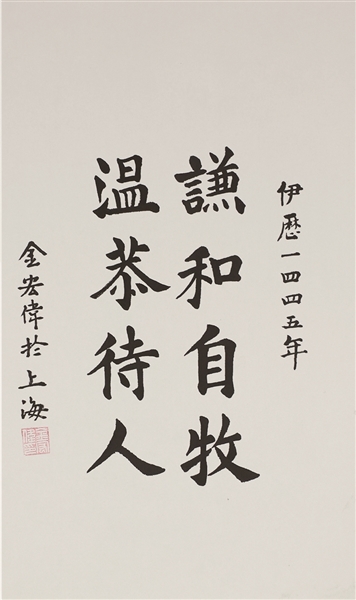 伊歷一四四五年
謙和自牧
溫恭待人
金宏偉於上海